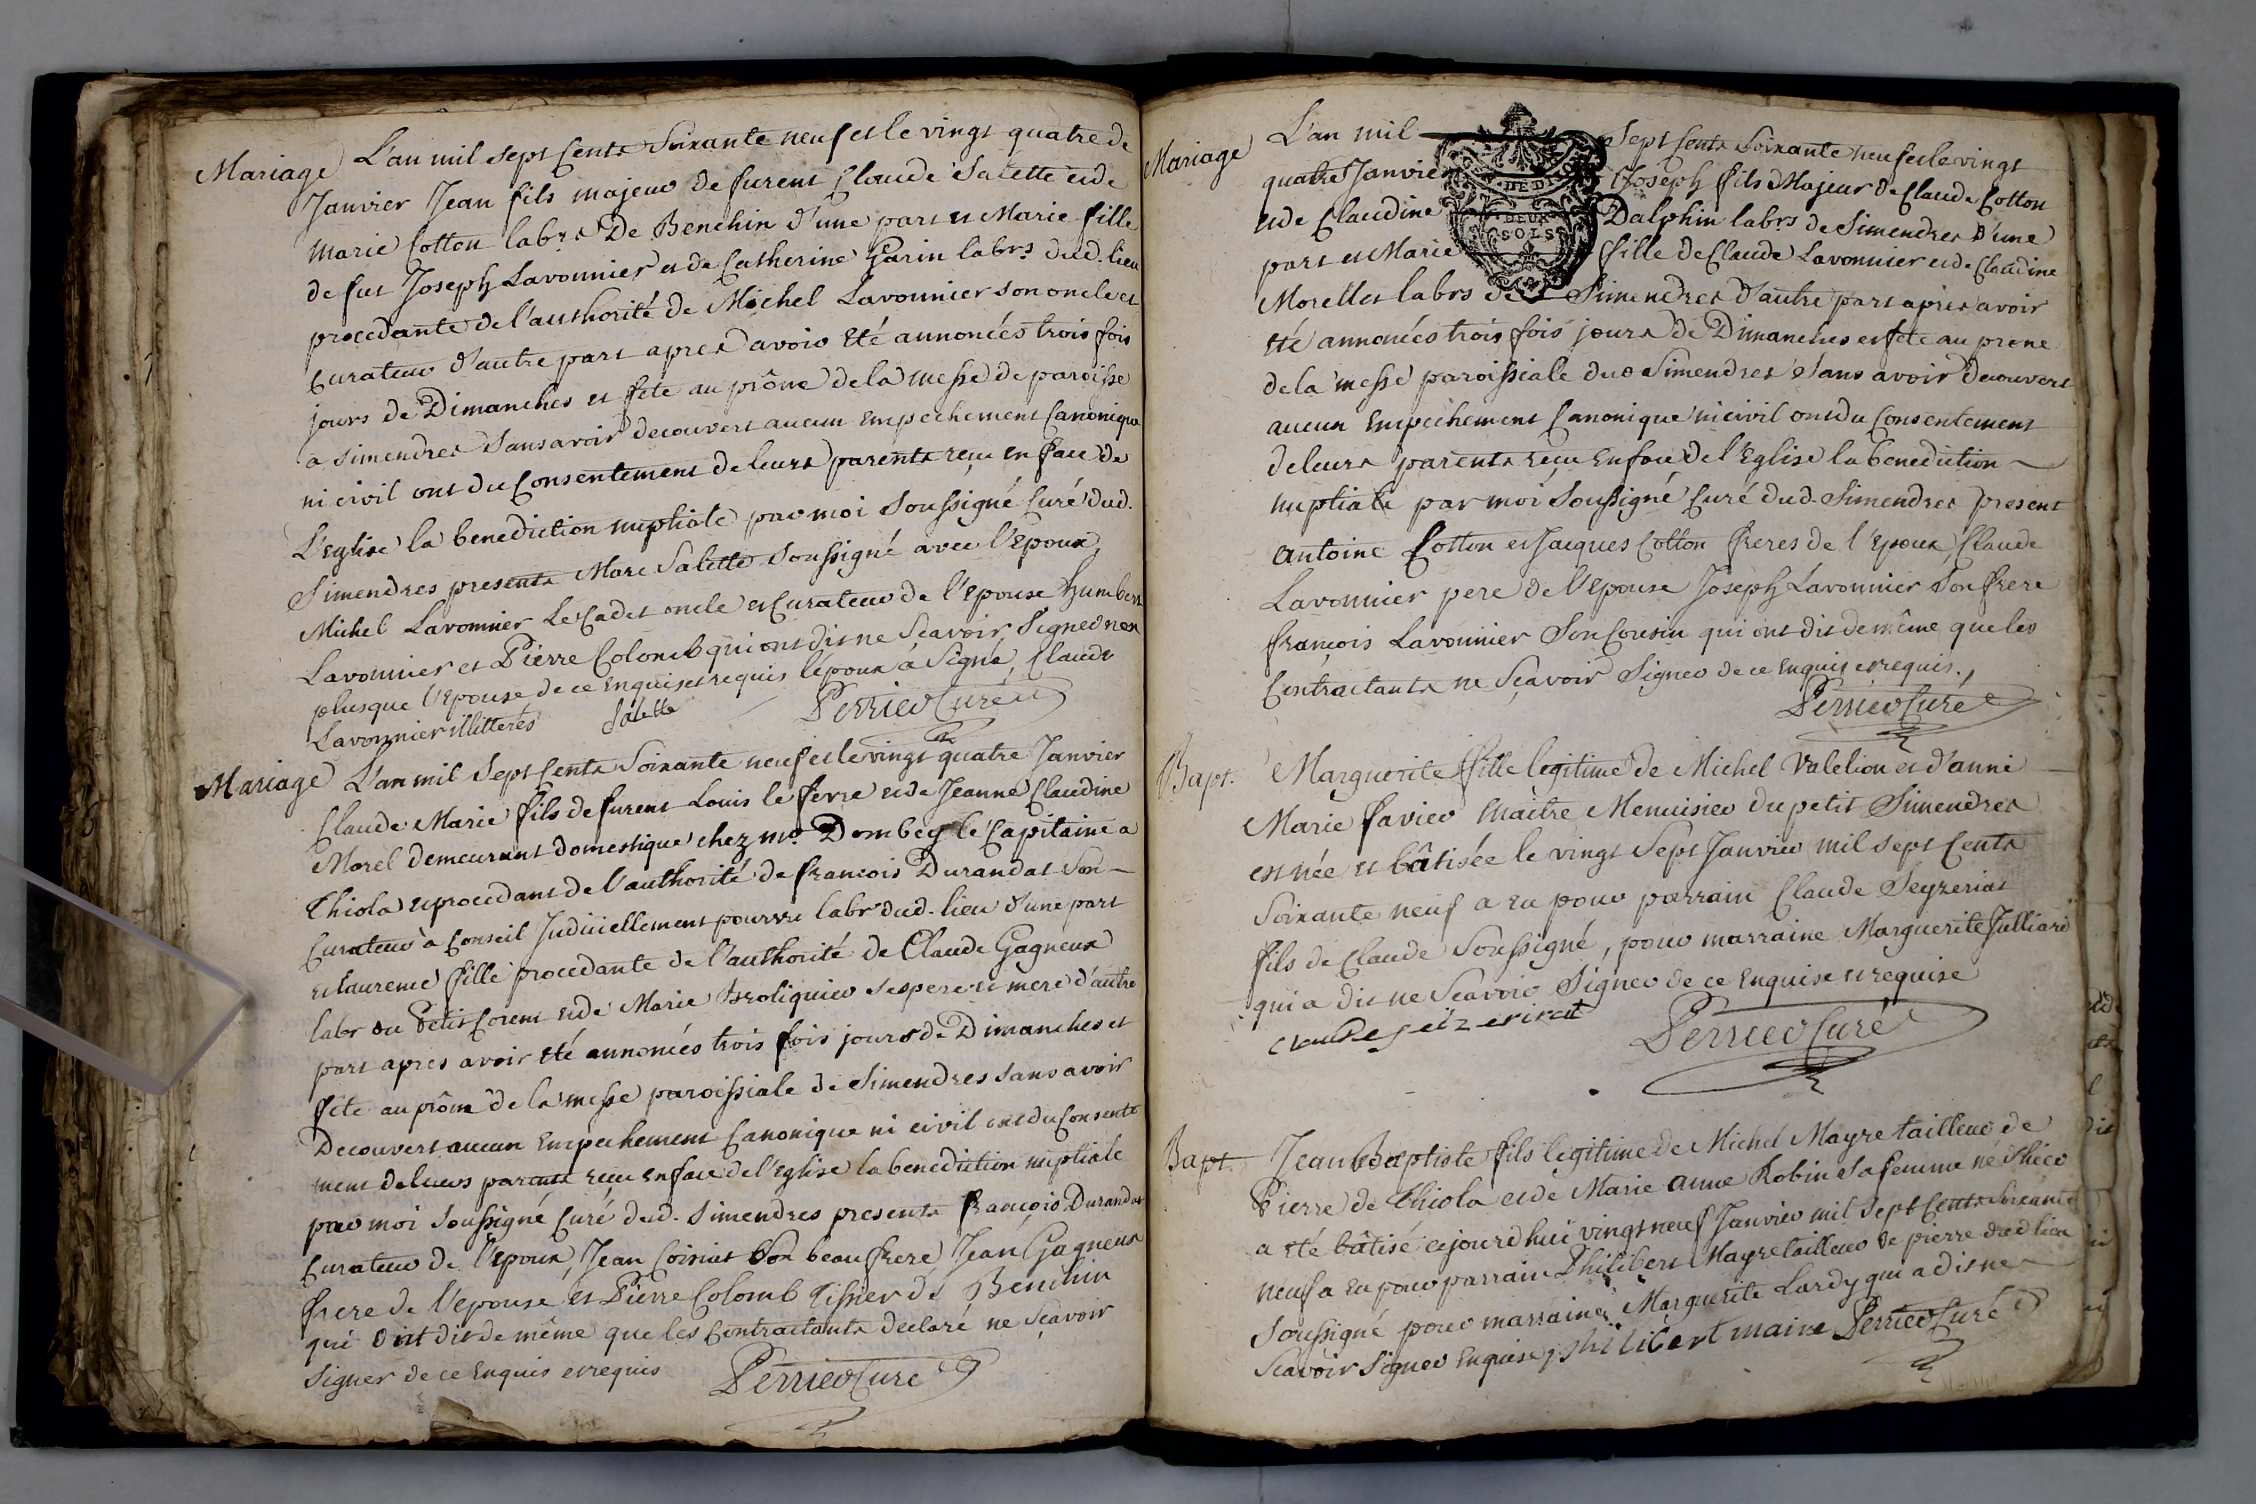 Mariage L'an mil sept Cents Soixante neuf et le vingt quatre de
Janvier Jean fils majeur de furent Claude Salette et de
Marie Cotton labrs De Benchin d'une part et Marie fille
de fut Joseph Lavonnier et de Catherine Garin labrs dud. lieu
procedante de l'authorité de Michel Lavonnier son oncle et
Curateur d'autre part apres avoir eté annoncées trois fois
jours de Dimanches et fete au prône de la messe de paroisse
a simendres sans avoir decouvert aucun empechement Canonique
ni civil ont du Consentement de leurs parents reçu en face de
L'eglise la benediction nuptiale par moi Soussigné Curé dud.
Simendres presents Marc Salette Soussigné avec l'Epoux,
Michel Lavonnier Le Cadet oncle et Curateur de l'epouse humbert
Lavonnier et Pierre Colomb qui ont dit ne Scavoir Signer non
plus que l'epouse de ce enquis et requis l'epoux a Signé, Claude
Lavonnier illitterés Salette Perrier Curé
Mariage L'an mil Sept Cents Soixante neuf et le vingt quatre Janvier
Claude Marie fils de furent Louis le fevre et de Jeanne Claudine
Morel demeurant domestique chez mr. Dombey le Capitaine a
Chiola et procedant de l'authorité de francois Durandat Son
Curateur a Conseil Judiciellement pourvu labr dud. lieu d'une part
et laurence fille procedante de l'authorité de Claude Gagneux
labr du Petit Corent et de Marie Broliquier ses pere et mere d'autre
part apres avoir eté annoncées trois fois jours de Dimanches et
fête au prône de la messe paroissiale de Simendres sans avoir
Decouvert aucun Empechement Canonique ni civil ont du Consente
ment de leurs parents reçu en face de l'eglise la benediction nuptiale
par moi Soussigné Curé dud. Simendres presents francois Durandat
Curateur de l'epoux, Jean Coiniat Son beau frere Jean Gagneux
frere de l'epouse et Pierre Colomb Tissier de Benchin
qui ont dit de même que les Contractants declaré ne Sçavoir
Signer de ce enquis et requis Perrier Curé
Mariage L'an mil Sept Cents Soixante neuf et le vingt
quatre Janvier Joseph fils Majeur de Claude Cotton
et de Claudine Dalphin labrs de Simendres d'une
part et Marie fille de Claude Lavonnier et de Claudine
DE DIJON
DEUX
SOLS
Morellet labrs de Simendres d'autre part apres avoir
eté annoncées trois fois jours de Dimanches et fete au prone
de la messe paroissiale dud Simendres Sans avoir decouvert
aucun Empechement Canonique ni civil ont du Consentement
de leurs parents reçu En face de l'Eglise la benediction
nuptiale par moi Soussigné Curé dud. Simendres present
antoine Cotton et Jacques Cotton freres de l'epoux, Claude
Lavonnier pere de l'epouse Joseph Lavonnier Son frere
francois Lavonnier Son Cousin qui ont dit de même que les
Contractants ne Sçavoir Signer de ce Enquis et requis.
Perrier Curé
Bapt. Marguerite fille legitime de Michel Valelion et d'anne
Marie favier Maitre Menuisier du petit Simendres
est née et bâtisée le vingt Sept Janvier mil sept Cents
Soixante neuf a eu pour parrain Claude Seyzeriat
fils de Claude Soussigné, pour marraine Marguerite Julliard
qui a dit ne Scavoir Signer de ce Enquise et requise
Claude seizeriat Perrier Curé
Bapt. Jean Baptiste fils legitime de Michel Mayre tailleur de
Pierre de Chiola et de Marie anne Robin Sa femme né d'hier
a eté bâtisé cejourd'hui vingt neuf Janvier mil Sept Cents Soixante
neuf a eu pour parrain Philibert Mayre tailleur de pierre dud lieu
Soussigné pour marraine Marguerite Lardy qui a dit ne
Scavoir Signer Enquise philibert maire Perrier Curé